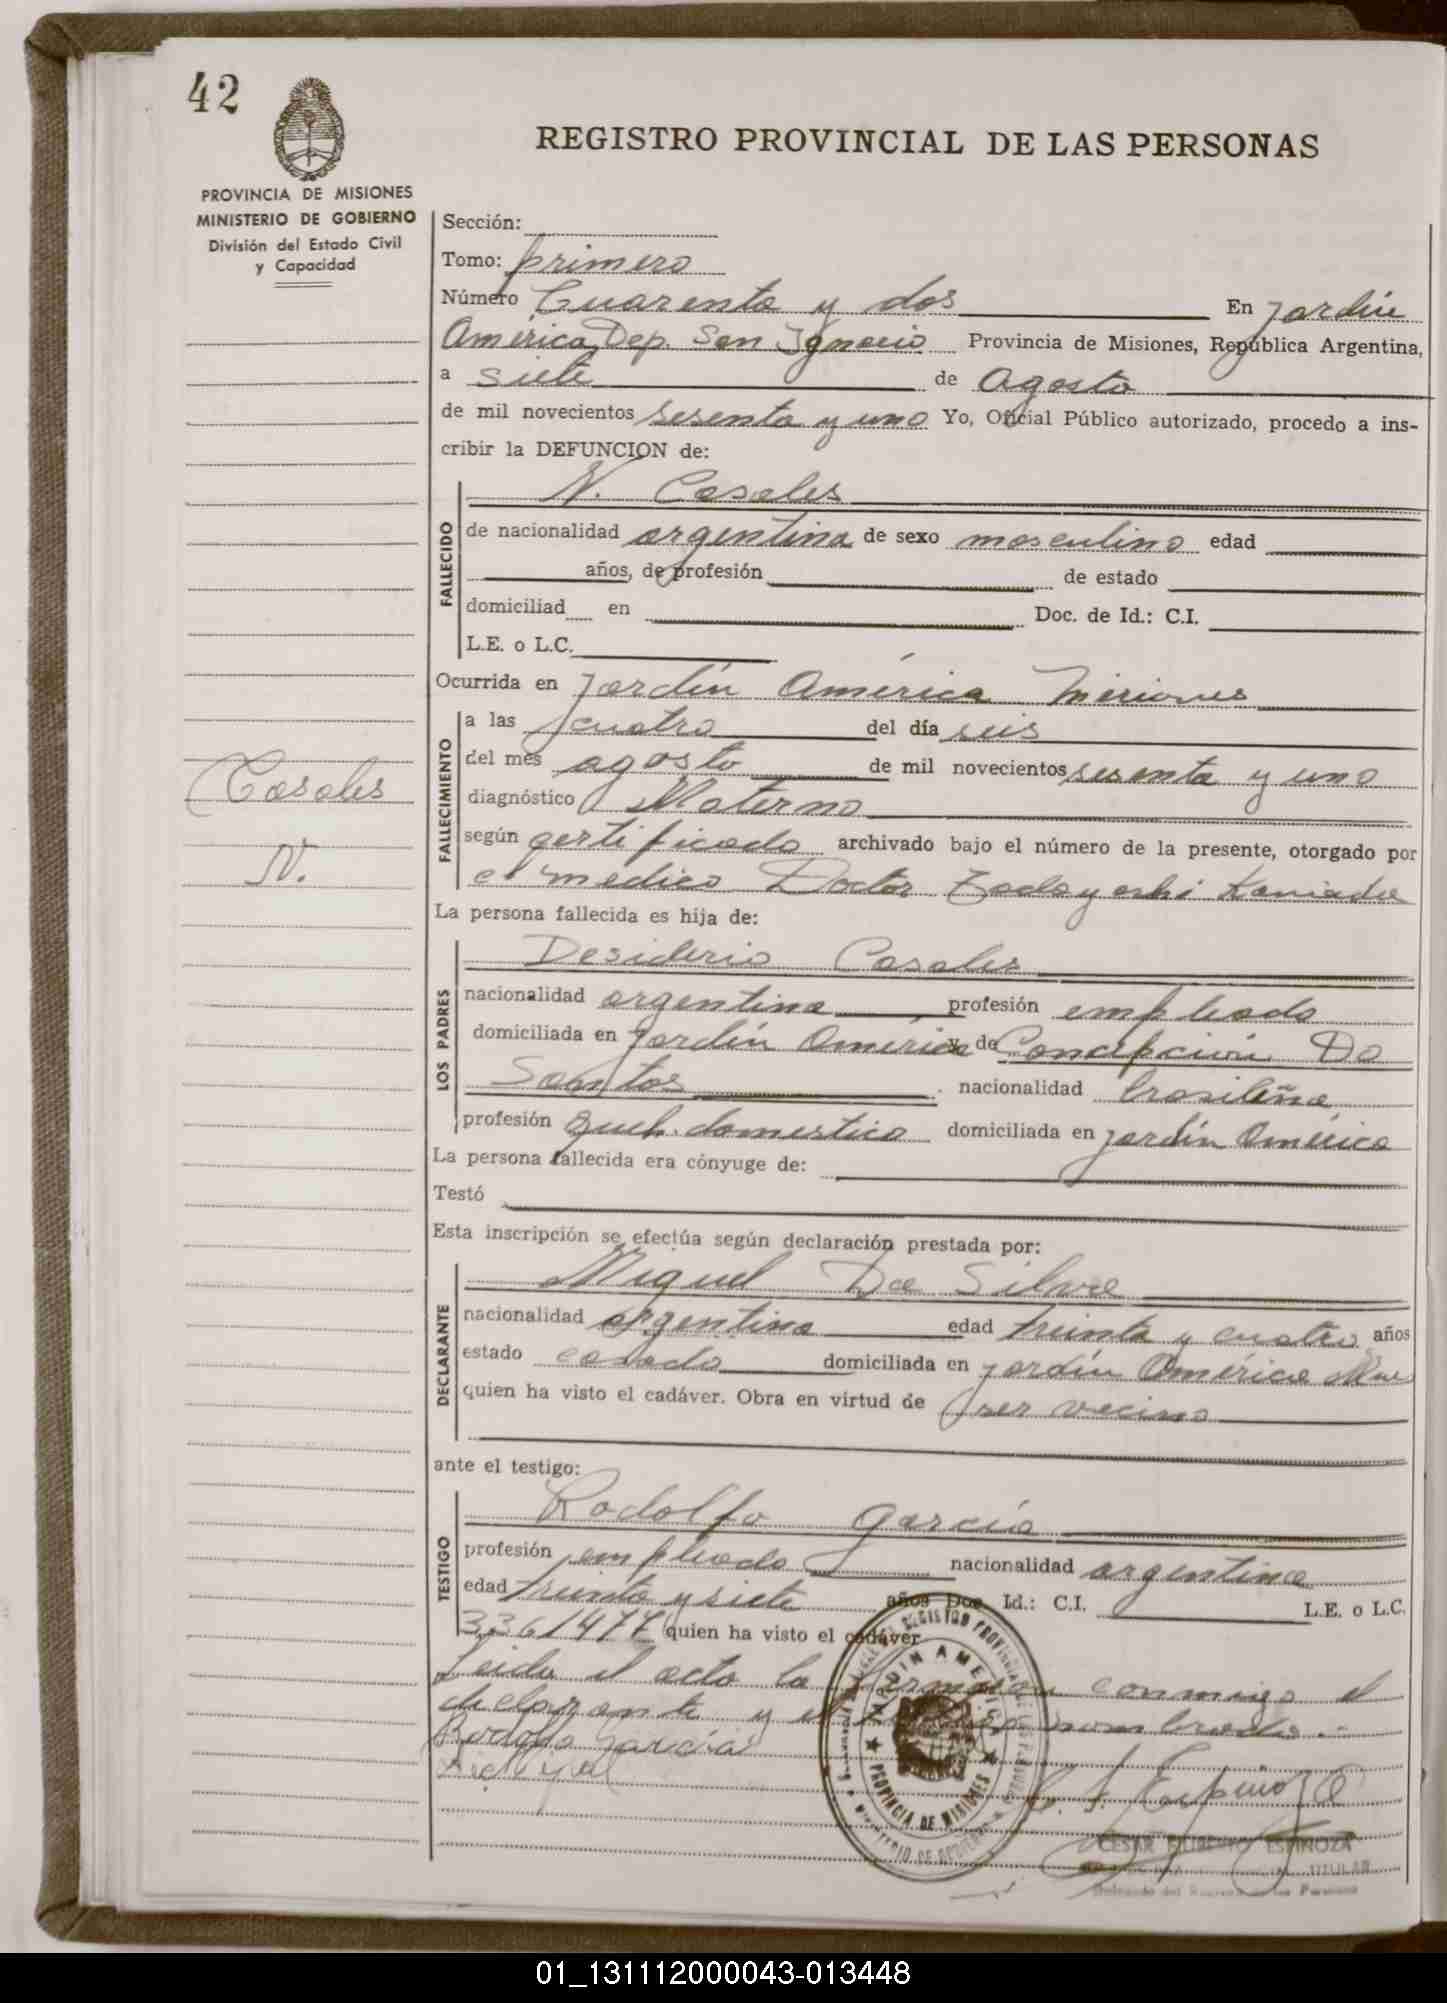 42
REGISTRO PROVINCIAL DE LAS PERSONAS
PROVINCIA DE MISIONES
MINISTERIO DE GOBIERNO
División del Estado Civil
y Capacidad
Sección:
Tomo: primero
Número Cuarenta y dos En Jardín
América, Dep. San Ignacio Provincia de Misiones, República Argentina,
a siete de Agosto
de mil novecientos sesenta y uno Yo, Oficial Público autorizado, procedo a ins-
cribir la DEFUNCION de:
FALLECIDO
N. Casales
de nacionalidad argentina de sexo masculino edad
años, de profesión de estado
domiciliad en Doc. de Id.: C.I.
L.E. o L.C.
Ocurrida en Jardín América Misiones
FALLECIMIENTO
a las cuatro del día seis
del mes agosto de mil novecientos sesenta y uno
diagnóstico Materno
según certificado archivado bajo el número de la presente, otorgado por
el médico Doctor
Casales
N.
La persona fallecida es hija de:
LOS PADRES
Desiderio Casales
nacionalidad argentina profesión empleado
domiciliada en Jardín América y de Concepción Do
Santos nacionalidad brasileña
profesión queh. domestico domiciliada en Jardín América
La persona fallecida era cónyuge de:
Testó
Esta inscripción se efectúa según declaración prestada por:
DECLARANTE
Miguel Da Silva
nacionalidad argentina edad treinta y cuatro años
estado casado domiciliada en Jardín América
quien ha visto el cadáver. Obra en virtud de ser vecino
ante el testigo:
TESTIGO
Rodolfo García
profesión empleado nacionalidad argentina
edad treinta y siete años Doc. Id.: C.I. L.E. o L.C.
3361477 quien ha visto el cadáver
Leida el acta la firman conmigo el
declarante y el nombrado.-
Rodolfo García
JARDIN AMERICA
PROVINCIA DE MISIONES
C. F. Espinoza
CESAR FILIBERTO ESPINOZA
TITULAR
01_131112000043-013448